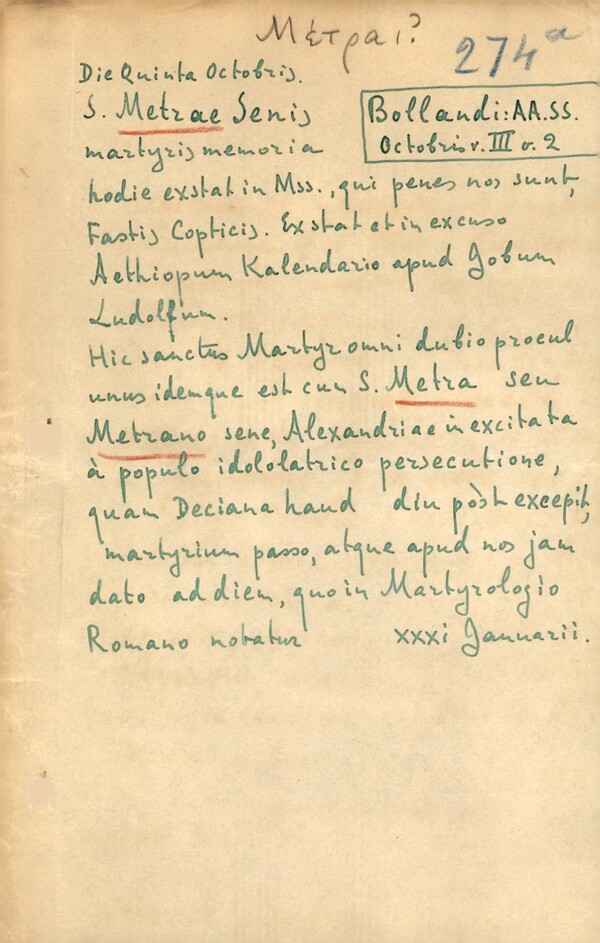 Μέτραι?
274a
Die Quinta Octobris.
S. Metrae Senis
Bollandi: AA.SS.
Octobris v. III v. 2
martyris memoria
hodie exstat in Mss., qui penes nos sunt,
Fastis Copticis. Exstat et in excuso
Aethiopum Kalendario apud Jobum
Ludolfum.
Hic sanctus Martyr omni dubio procul
unus idemque est cum S. Metra seu
Metrano sene, Alexandriae in excitata
à populo idololatrico persecutione,
quam Deciana haud diu pòst excepit,
martyrium passo, atque apud nos jam
dato ad diem, quo in Martyrologio
Romano notatur xxxi Januarii.